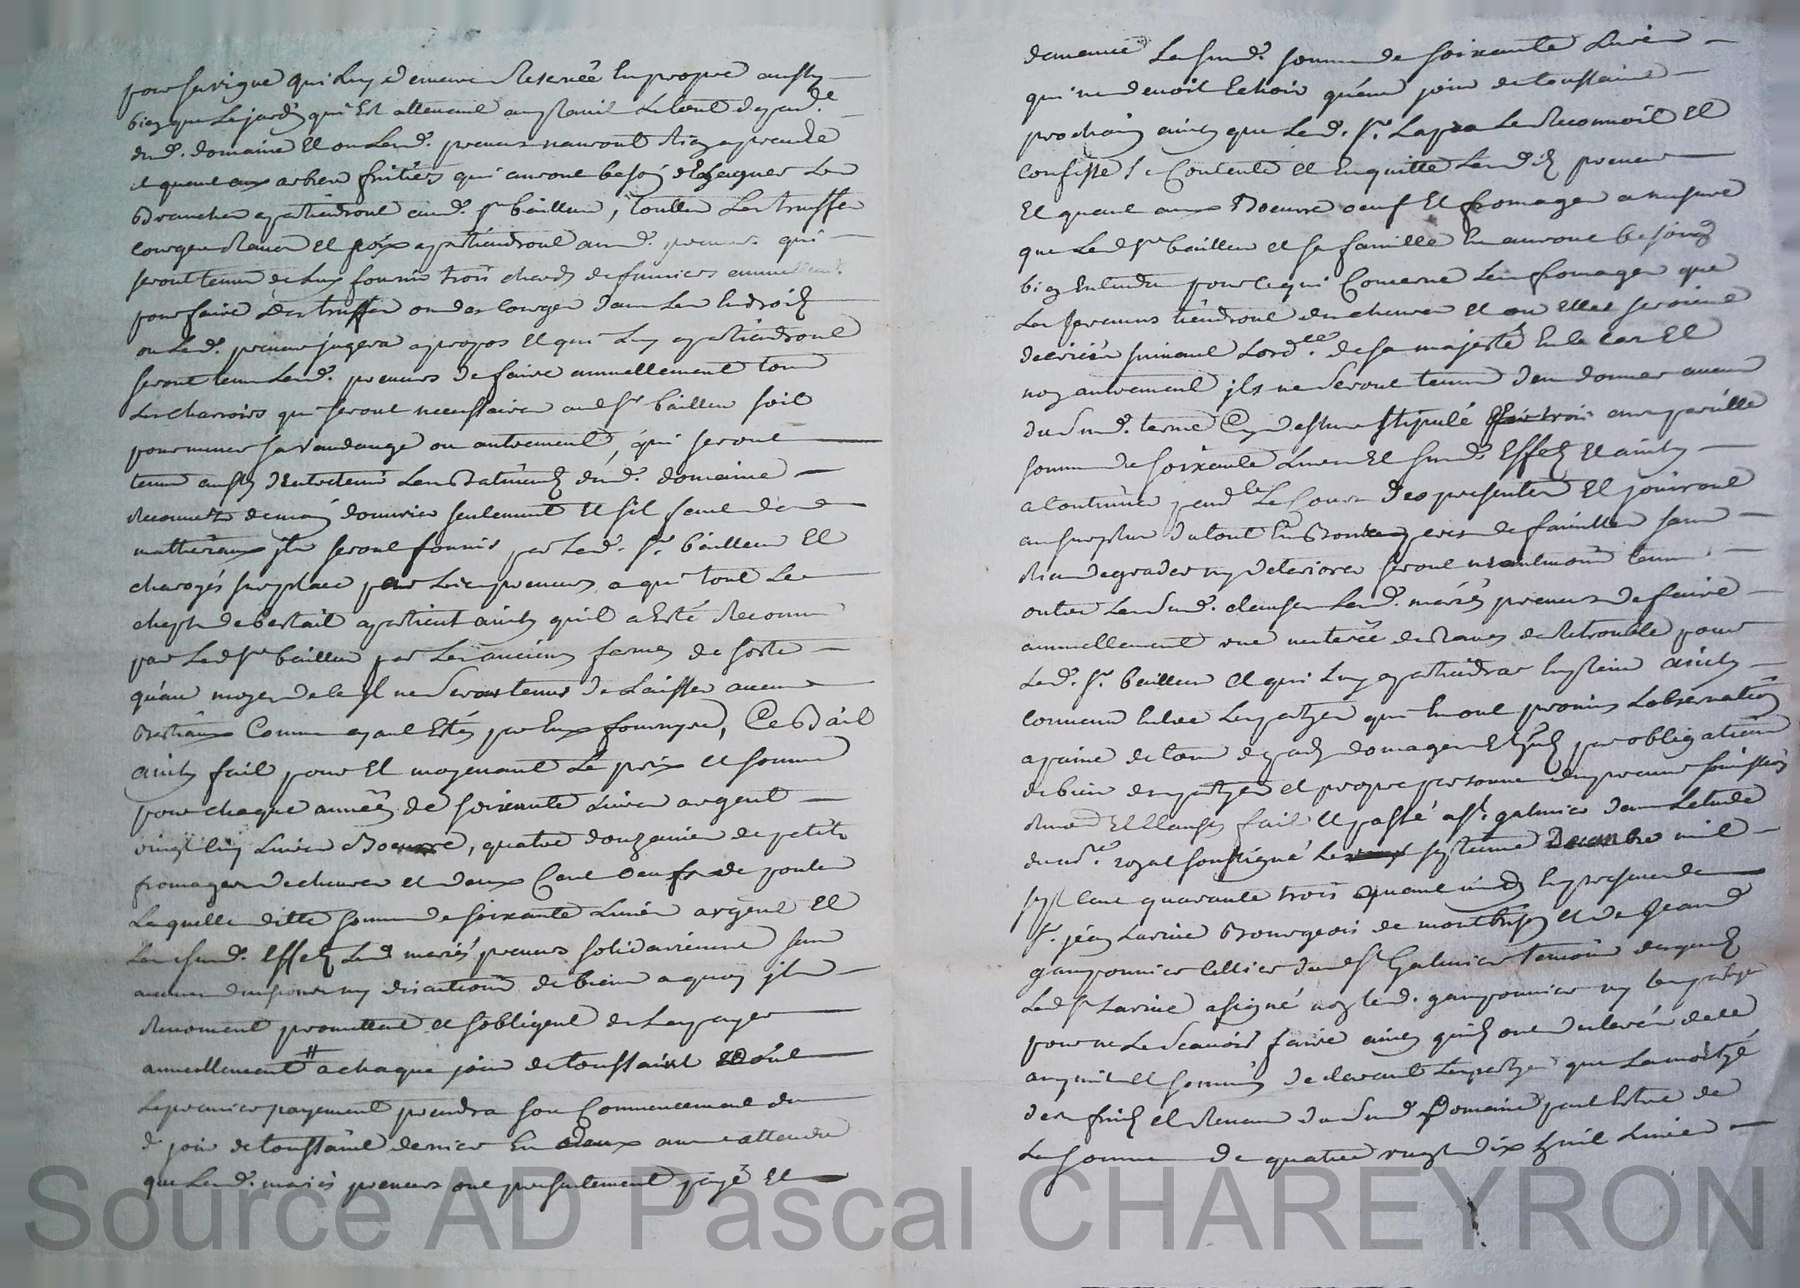 pour sa vigne qui luy demeure reservée en propre aussy
bien que le jardin qui est attenant et tout dependt
dud. domaine et ou lesd. preneurs nauront rien a prendre
et quant aux arbres fruitiers qui auront besoin les
branches apartiendront aud. sr bailleur, toutes les truffes
courges raves et poix apartiendront aud. preneurs qui
seront tenus de luy fournir trois chards de fumiers annuellemt
pour faire des truffes ou des courges dans les endroits
ou led. preneur jugera apropos et qui luy apartiendront
seront tenus lesd. preneurs de faire annuellement tous
les charrois qui seront necessaires aud sr bailleur soit
pour mener sa vandange ou autrement, qui seront
tenus aussy dentretenir les batiments dud. domaine
de main douvrier seulement et sil faut des
matheriaux ils seront fournis par led. sr. bailleur et
charoyés sur place par les preneurs a qui tout le
cheptz de bestail apartient ainsy quil a esté reconnu
par led sr bailleur par les anciens fermes de sorte
quau moyen de ce il ne seront tenus de laisser aucuns
bestiaux comme ayant estés par eux fournys, Ce bail
ainsy fait pour et moyenant le prix et somme
pour chaque années de soixante livres argent
vingt cinq livres beurre, quatre douzaines de petits
fromages de chevres et deux cent oeufs de poules
laquelle ditte somme de soixante livres argent et
les susd. effets lesd mariés preneurs solidairement sans
aucune division ny discution de biens a quoy ils
renoncent promettent et sobligent de la payer
annuellement # a chaque jour de toussaint dont
le premier payement prendra son commencement du
d jour de toussaint dernier en deux ans attendu
que lesd. mariés preneurs ont presentement payé et
davance la susd. somme de soixante livres
qui ne devoit echoir quau jour de toussaint
prochain ainsy que led. sr. Lapra le reconnoit et
confesse s'en contente et en quitte lesd preneurs
et quant aux beurre oeufs et fromages a mesure
que led sr bailleur et sa famille en auront besoins
bien entendu pour ce qui concerne les fromages que
les preneurs tiendront des chevres et ou elles seroient
detruites suivant lordce. de sa majesté en ce cas et
non autrement ils ne seront tenus den donner aucun
du susd. terme cy dessus stipulé trois ans pareille
somme de soixante livres et susd. effets et ainsy
a continuer pendt le cours des presentes et jouiront
au surplus du tout en bons peres de familles sans
rien degrader ny deteriorer seront neantmoins tenus
outre les susd. clauses lesd. mariés preneurs de faire
annuellement une meterée de raves de retrouble pour
led. sr. bailleur et qui luy apartiendra en plein ainsy
convenu entre les partyes qui en ont promis lobservation
a peine de tous depands domages et interets par obligation
de biens des partyes et propre personne des preneurs soumissions
renon et clauses fait et passé a st. galmier dans letude
du nre. royal soussigné le septieme Decembre mil
sept cent quarante trois avant midy en presence de
sr. jean Larive bourgeois de montbrison et de Jean
gamponnier cellier dud st Galmier temoins desquels
led sr Larive a signé non led. gamponnier ny les partyes
pour ne le scavoir faire ainsy quils ont declarés de ce
enquis et sommés declarants les partyes que la moityé
des fruits et revenus du susd Domaine peut estre de
la somme de quatre vingt dix huit livres